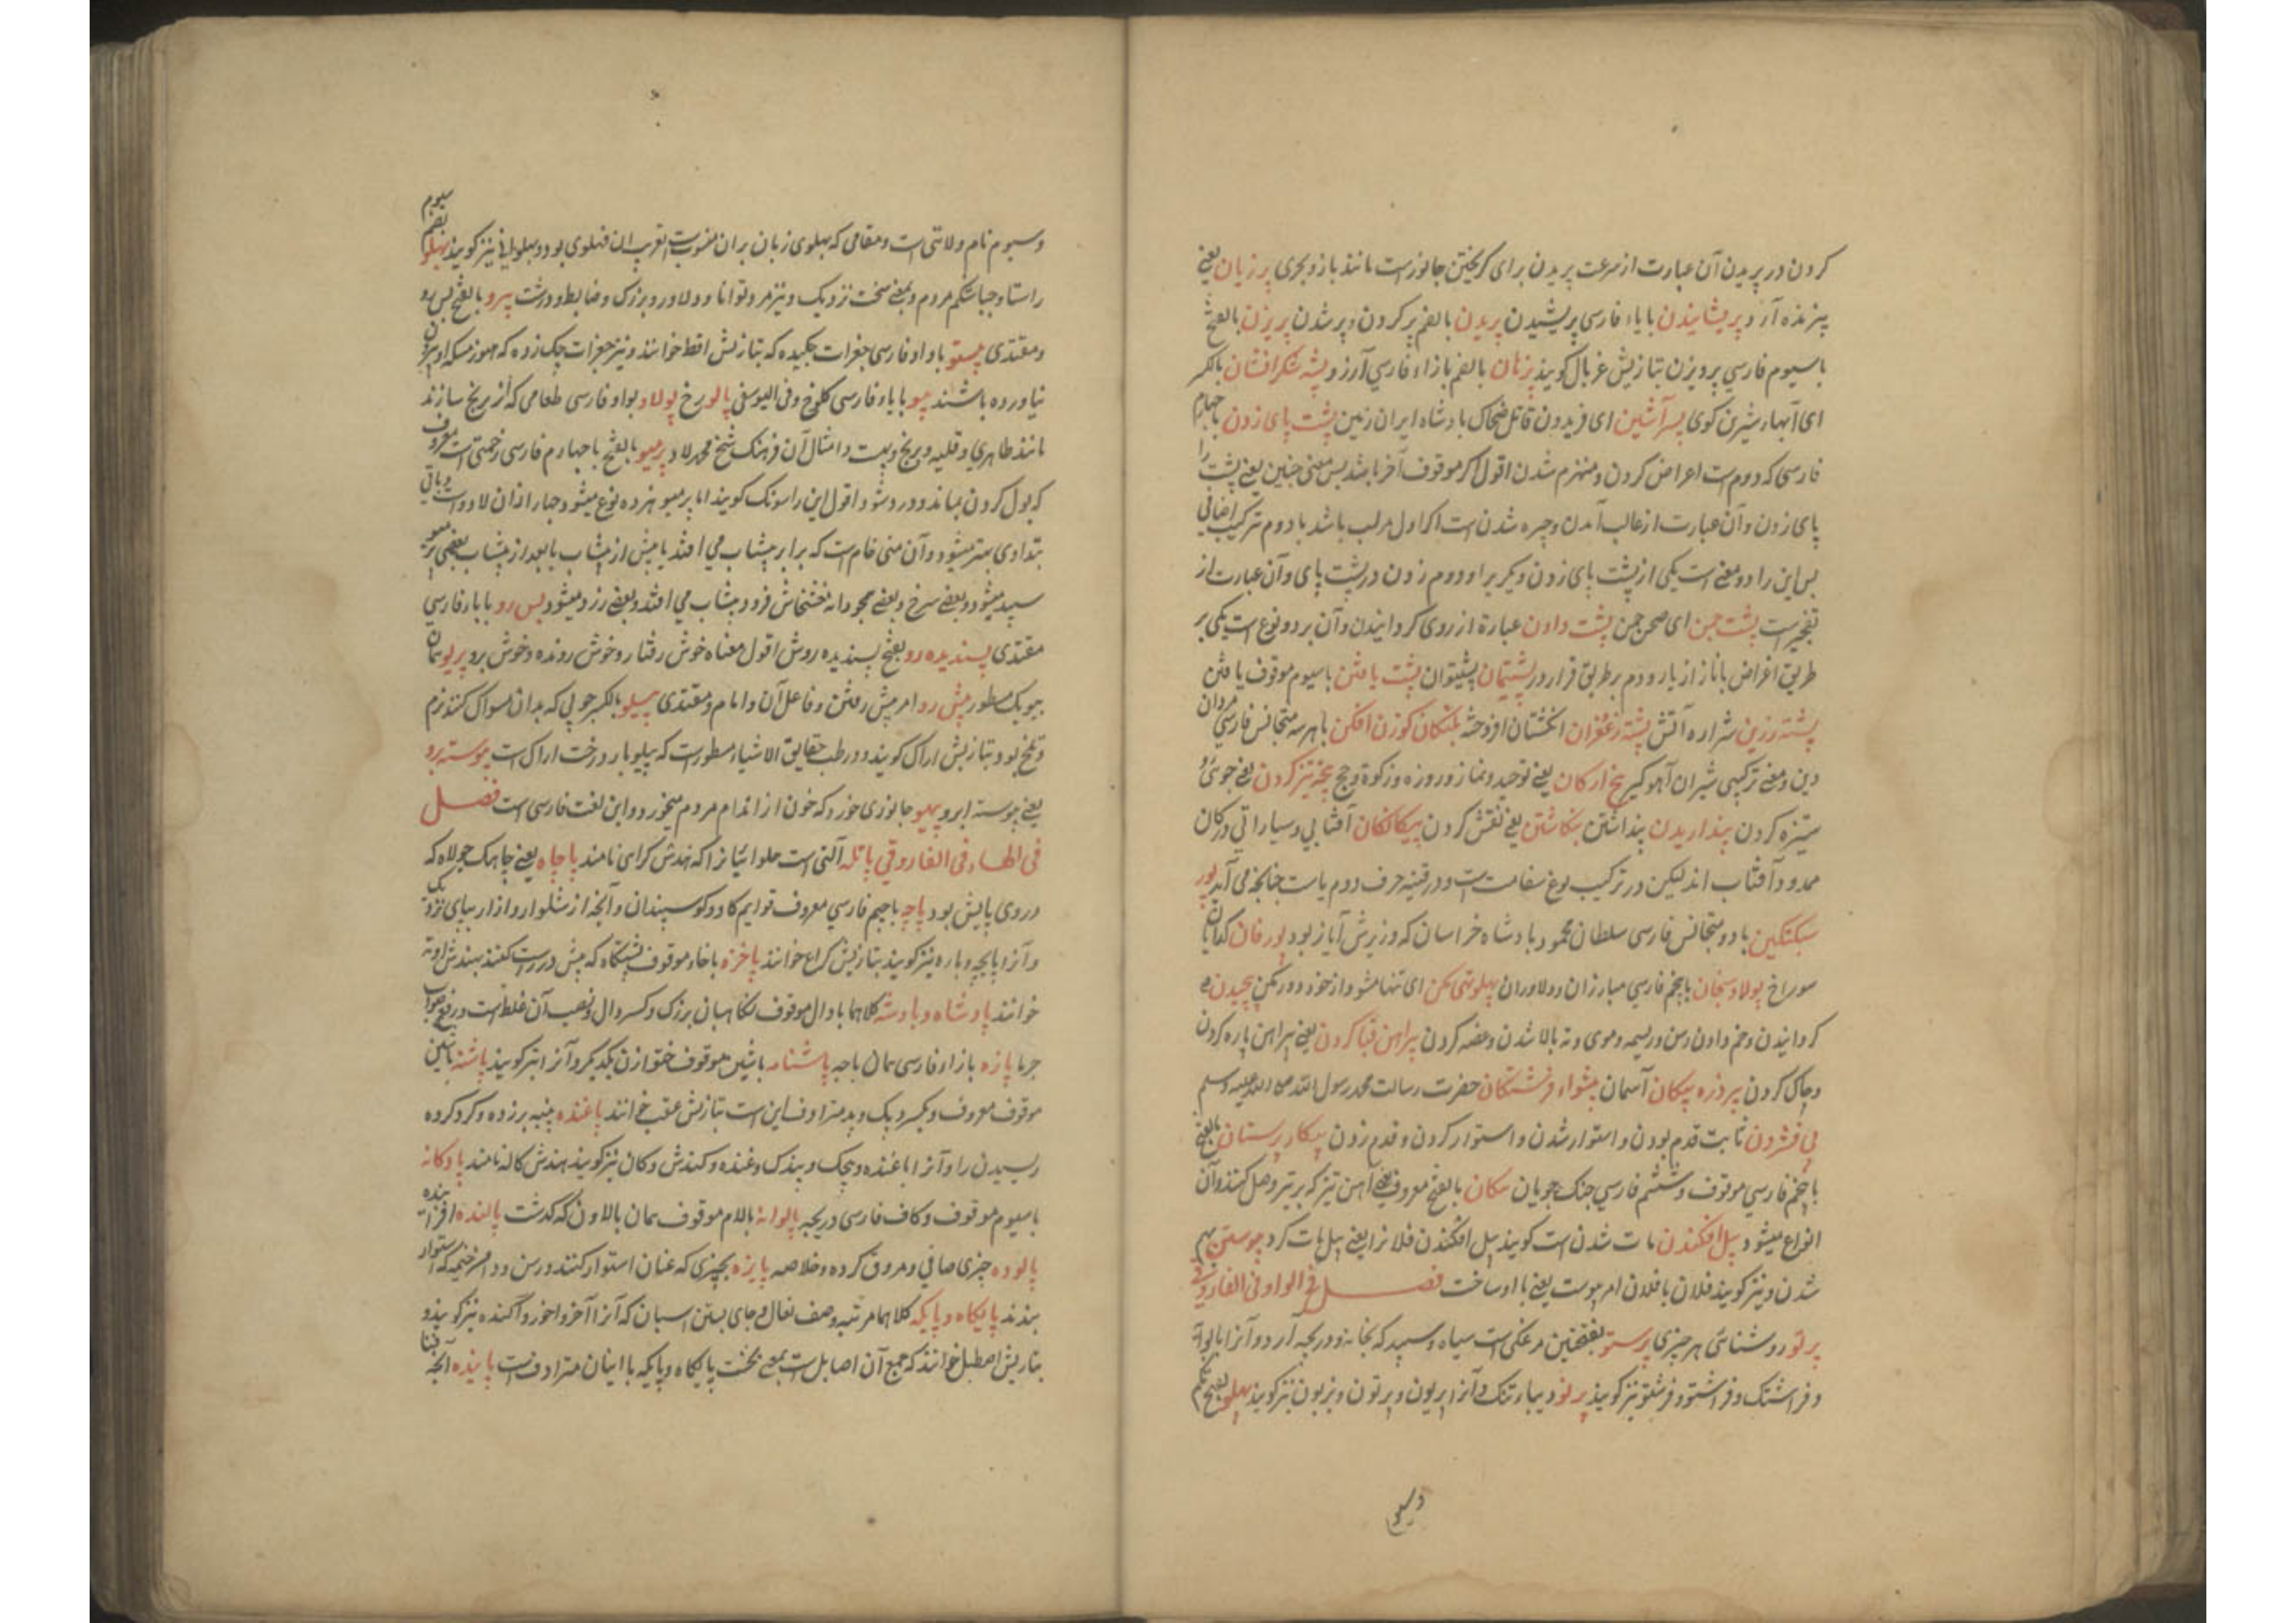 کردن در پریدن آن عبارت از سرعت پریدن برای گریختن جانورست مانند باز و بحری پرزیان یعنی
پرنده آرد پریشانیدن با یاء فارسی پریشیدن پریدن بالضم پر کردن و پر شدن پریزن بالفتح
با سیوم فارسی پرویزن بتازیش غربال گویند پژمان بالضم با زاء فارسی آرزو پشه شکر افشان بالکسر
ای آنهاء شیرین گوی پسر آتشین ای فریدون قاتل ضحاک بادشاه ایران زمین پشت پای زدن با چهارم
فارسی که دوم است اعراض کردن و منهزم شدن اقول اگر موقوف آخر باشد پس معنی چنین یعنی پشت را
پای زدن و آن عبارت از غالب آمدن و چیره شدن است اگر اول مرکب باشد با دوم ترکیب اضافی
پس این را دو معنی است یکی از پشت پای زدن دیگر برا و دوم زدن در پشت پای و آن عبارت از
پشت چمن ای صحن چمن پشت دادن عبارة از روی گردانیدن و آن بر دو نوع است یکی بر
طریق اعراض با ناز از یار و دوم بر طریق فرار در پشتیمان پشتیوان پشت یافتن با سیوم موقوف یافتن
پشته زرین شراره آتش پشته زعفران انگشتان افروخته پلنگان گوزن افکن با هر سه متجانس فارسی مردان
دین و معنی ترکیبی شیران آهو گیر پنج ارکان یعنی توحید و نماز و روزه و زکوة و حج پنجه تیز کردن یعنی
ستیزه کردن پنداریدن پنداشتن پنگاشتن یعنی نقش کردن پیکانکان آفتابی و سیاراتی
ممدود آفتاب اند لیکن در ترکیب و در قرینه حرف دوم یاست چنانچه می آید پور
سبکتکین با دو متجانس فارسی سلطان محمود بادشاه خراسان که وزیرش آیاز بود پورقان
سوراخ پولاد سنجان با پنجم فارسی مبارزان و دلاوران پهلو تهی مکن ای تنها مشو و از خود دور مکن پیچیدن
گردانیدن و خم دادن رسن و ریسمه و موی و ته بالا شدن و غصه کردن پیراهن قبا کردن یعنی پیراهن پاره کردن
و چاک کردن پیروزه پیکان آسمان پیشواء فرشتگان حضرت رسالت محمد رسول الله صلی الله علیه وسلم
پی فشردن ثابت قدم بودن و استوار شدن و استوار کردن و قدم زدن پیکار پرستان
با پنجم فارسی موقوف و ششم فارسی جنگ جویان پیکان بالفتح معروف یعنی آهن تیز که بر تیر وصل کنند و آن
انواع میشود پیل افکندن مات شدن است گویند پیل افکندن فلانرا یعنی پیل مات کرد پیوستن بهم
شدن و نیز گویند فلان با فلان امر پیوست یعنی با او ساخت فصل فی الواو فی الفاروقی
پرتو روشنائی هر چیزی پرستو بفتحتین مرغکی است سیاه و سپید که بخانه و دریچه آرد و آنرا پالوانه
و فراشتک و فراشتو و فرشتو نیز گویند پرنو دیباء تنک و آنرا پریون و پرنون و بزیون نیز گویند پهلو بفتح یکم
و سیوم نام ولایتی است و مقامی که پهلوی زبان بران منسوبست تعریب ان فهلوی بود و پهلوانی نیز گویند پهلو بضم سیوم
راستا و چپا شکم مردم و بمعنی سخت نزدیک و نیز مرد توانا و دلاور و بزرک و ضابط و درشت پیرو بالفتح پس رو
و مقتدی پیستو با واو فارسی جغرات چکیده که بتازیش اقط خوانند و نیز جغرات چک زده که هنوز مسکه او بیرون
نیاورده باشند پیو با یاء فارسی کلوخ و فی الیوسفی پالو زخ پولاو بواو فارسی طعامی که از برنج سازند
مانند طاهری و قلیه و برنج و بت و امثال آن فرهنک شیخ محمد لاد پرمیو بالفتح با چهارم فارسی زحمتی است معروف
که بول کردن نماند و درد شود اقول این را سوزنک گویند اما پرمیو هژده نوع میشود چهار ازان لادواست و باقی
بتداوی بهتر میشود و آن منی خام است که برابر پیشاب می افتد یا پیش از پیشاب یا بعد از پیشاب بعضی
سپید میشود و بعضی سرخ و بعضی همچو دانه خشخاش فرود پیشاب می افتد و بعضی زرد میشود پس رو با باء فارسی
مقتدی پسندیده رو بفتح پسندیده روش اقول معناه خوش رفتار و خوش رونده و خوش برو پریو همان
مسطور پیش رو امر پیش رفتن و فاعل آن و امام و مقتدی پیلو بالکسر چوبی که بدان مسواک کنند نرم
و تلخ بود و بتازیش اراک گویند و در طب حقایق الاشیاء مسطورست که پیلو بار درخت اراک است پیوسته برو
یعنی پیوسته ابرو پیهو جانوری خورد که خون از اندام مردم میخورد و این لغت فارسی است فصل
فی الهاء فی الفاروقی پاتله آلتی است حلوائیانرا که هندش کراهی نامند پاچاه یعنی چاهک جولاه که
در وی پایش بود پاچه با جیم فارسی معروف قوایم کاو و کوسپندان و آنچه از شلوار و ازار بپای نزدیک
و آنرا پایچه و پاره نیز گویند بتازیش کراع خوانند پاخره با خاء موقوف پیشگاه که پیش در راست کنند هندش اوته
خوانند پادشاه و پادشه کلاهما با دال موقوف نگاهبان بزرک و کسر دال و نصب آن غلط است و رفع صواب
پازه بازاء فارسی همان پاچه پاشنامه با شین موقوف آنرا نیز گویند پاشنه با شین
موقوف معروف و این است بتازیش عقب خوانند پاغنده پنبه برزده و گرد کرده
ریسیدن را و آنرا باغنده و پیچک و پندک و غنده و کندش و کان نیز گویند هندش کاله نامند پادگانه
با سیوم موقوف و کاف فارسی دریچه پالوانه با لام موقوف همان بالاون که گذشت پالنده افزاینده
پالوده چیزی صافی و مروق کرده و خلاصه پایزه چیزی که عنان استوار کنند و رسن و دامن خیمه که استوار
بندند پایگاه و پایگه کلاهما مرتبه و صف نعال و جای بستن اسبان که آنرا آخر و آخور و آگنده نیز گویند و
بتازیش اصطبل خوانند که جمع آن اصابل است بمعنی نخست پایگاه و پایگه با اینان مترادفست پاینده آنچه فنا